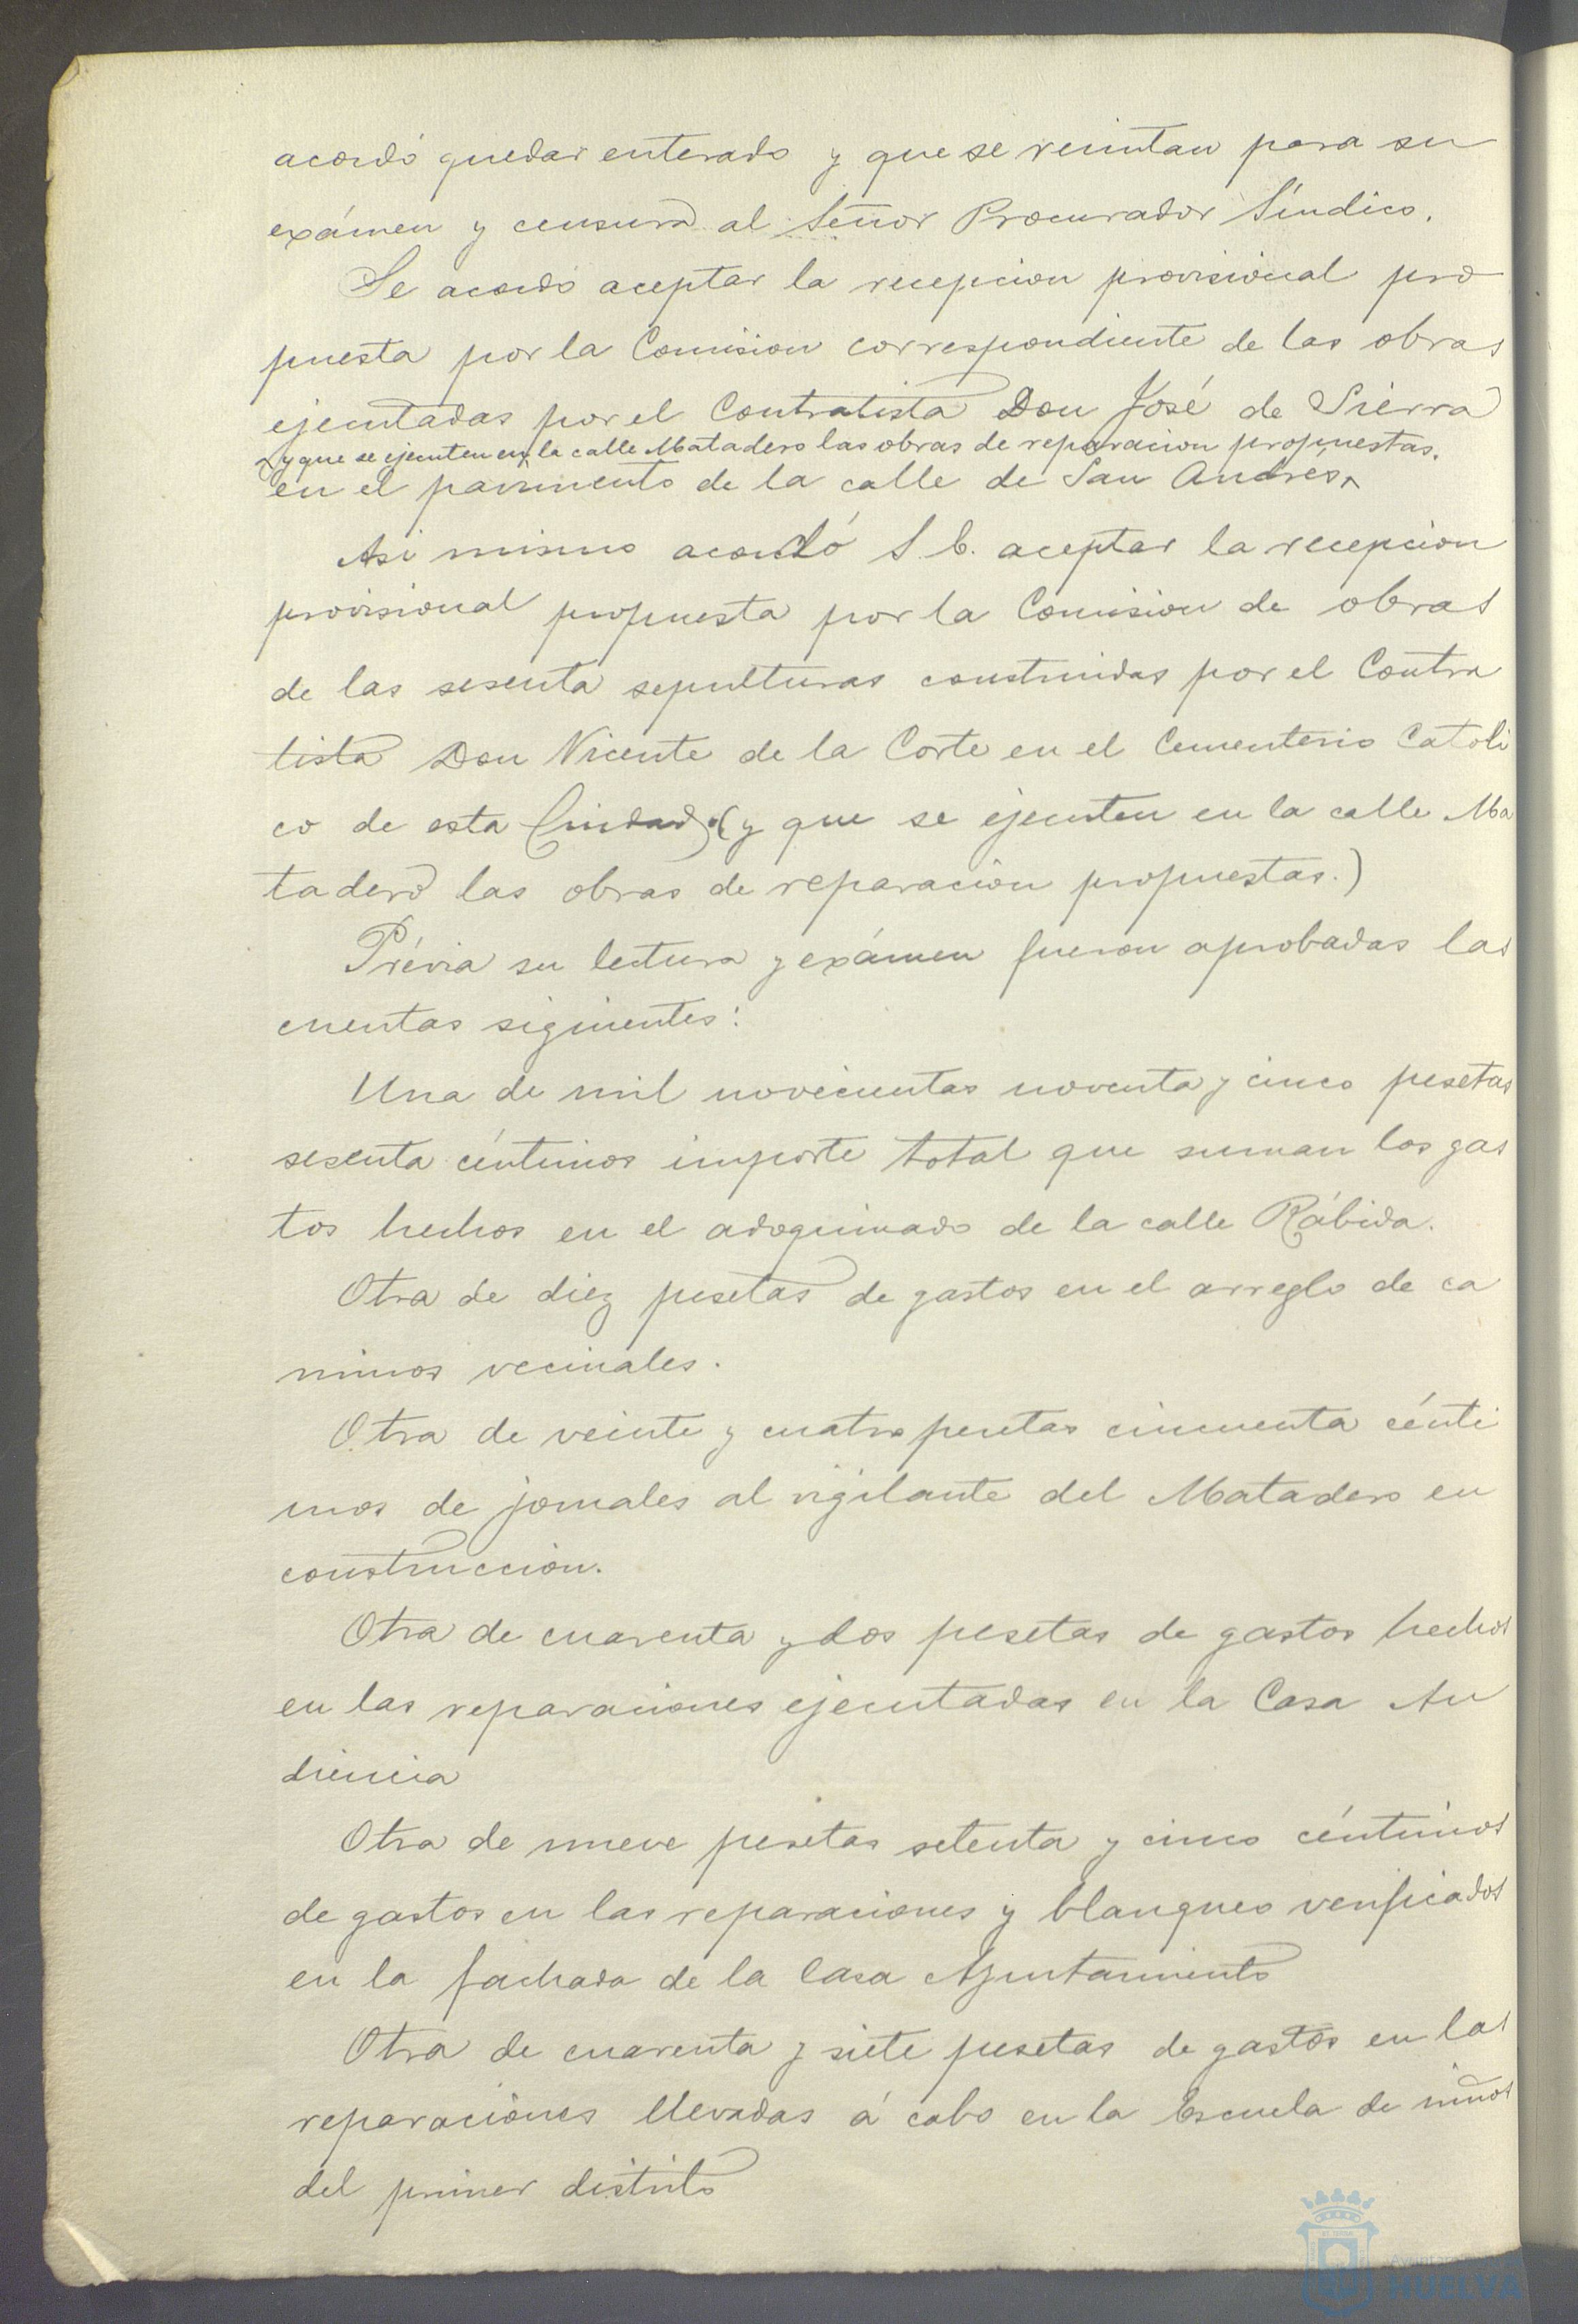 acordó quedar enterado y que se remitan para su
exámen y censura al Señor Procurador Síndico.
Se acordó aceptar la recepcion provisional pro
puesta por la Comision correspondiente de las obras
ejecutadas por el Contratista Don José de Sierra
y que se ejecuten en la calle Matadero las obras de reparacion propuestas.
en el pavimento de la calle de San Andrés
Asi mismo acordó S. E. aceptar la recepcion
provisional propuesta por la Comision de obras
de las sesenta sepulturas construidas por el Contra
tista Don Vicente de la Corte en el Cementerio Catoli
co de esta Ciudad. (y que se ejecuten en la calle Ma
tadero las obras de reparacion propuestas.)
Prévia su lectura y exámen fueron aprobadas las
cuentas siguientes:
Una de mil novecientas noventa y cinco pesetas
sesenta céntimos importe total que suman los gas
tos hechos en el adoquinado de la calle Rábida.
Otra de diez pesetas de gastos en el arreglo de ca
minos vecinales.
Otra de veinte y cuatro pesetas cincuenta cénti
mos de jornales al vigilante del Matadero en
construccion.
Otra de cuarenta y dos pesetas de gastos hechos
en las reparaciones ejecutadas en la Casa Au
diencia
Otra de nueve pesetas setenta y cinco céntimos
de gastos en las reparaciones y blanqueo verificados
en la fachada de la Casa Ayuntamiento
Otra de cuarenta y siete pesetas de gastos en las
reparaciones llevadas á cabo en la Escuela de niños
del primer distrito
HUELVA